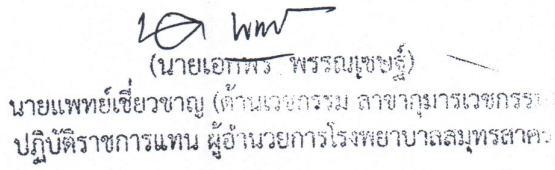 (นายเอกพร พรรณเชษฐ์)
นายแพทย์เชี่ยวชาญ (ด้านเวชกรรม สาขากุมารเวชกรรม
ปฏิบัติราชการแทน ผู้อำนวยการโรงพยาบาลสมุทรสาคร